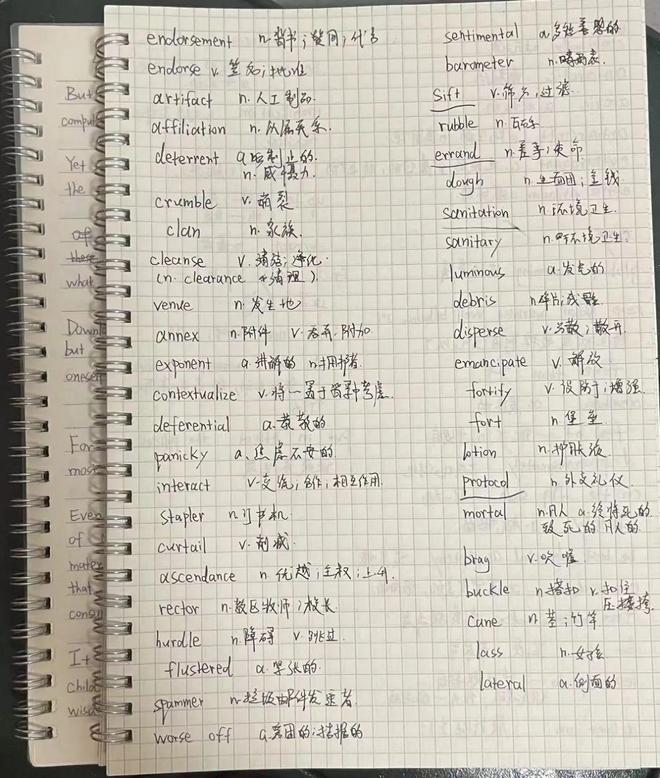 But
compu
Yet
the
of
these
what
Down
but
onesel
For
most
Even
of
mater
that
consu
It
Child
wisd
endorsement n.背书;赞同;代言
endorse v.签名;批准
artifact n.人工制品.
affiliation n.从属关系.
deterrent a.制止的.
n.威慑力.
crumble v.崩裂
clan n.家族.
cleanse v.清洁;净化.
(n. clearance 清理).
venue n.发生地
annex n.附件 v.吞并.附加
exponent a.讲解的 n.拥护者.
contextualize v.将一置于背景中考虑.
deferential a.恭敬的
panicky a.焦虑不安的.
interact v.交流;合作;相互作用.
stapler n.订书机
curtail v.削减.
ascendance n.优越;主权;上升.
rector n.教区牧师;校长
hurdle n.障碍 v.跳过.
flustered a.紧张的.
spammer n.垃圾邮件发送者.
worse off a.贫困的;拮据的
sentimental a.多愁善感的
barometer n.晴雨表.
sift v.筛分;过滤
rubble n.瓦砾
errand n.差事;使命
dough n.生面团;金钱
sanitation n.环境卫生.
sanitary n.环境卫生.
luminous a.发光的
debris n.碎片;残骸
disperse v.分散;散开
emancipate v.解放
fortify v.设防于;增强.
fort n.堡垒
lotion n.护肤液
protocol n.外交礼仪
mortal n.凡人 a.终将死的
致死的 凡人的.
brag v.吹嘘.
buckle n.搭扣 v.扣住
压垮
cane n.茎;竹竿
lass n.女孩
lateral a.侧面的